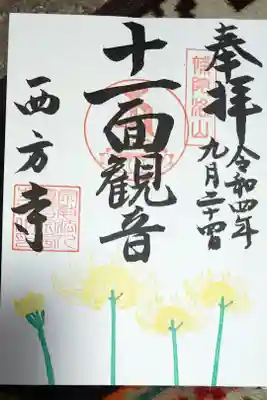 奉拝
令和四年
九月二十四日
十一面観音
西方寺